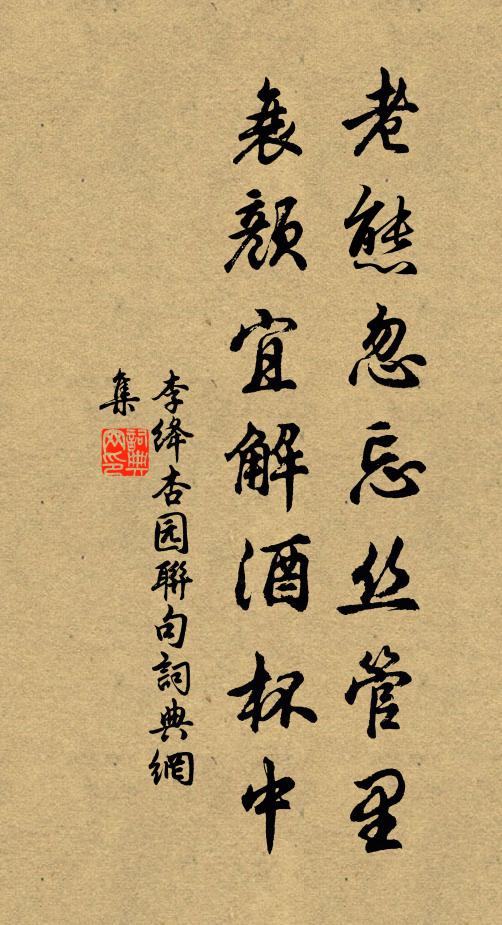 老態忽忘丝管里
衰颜宜解酒杯中
李绛杏园聯句詞典網
集
詞典网印